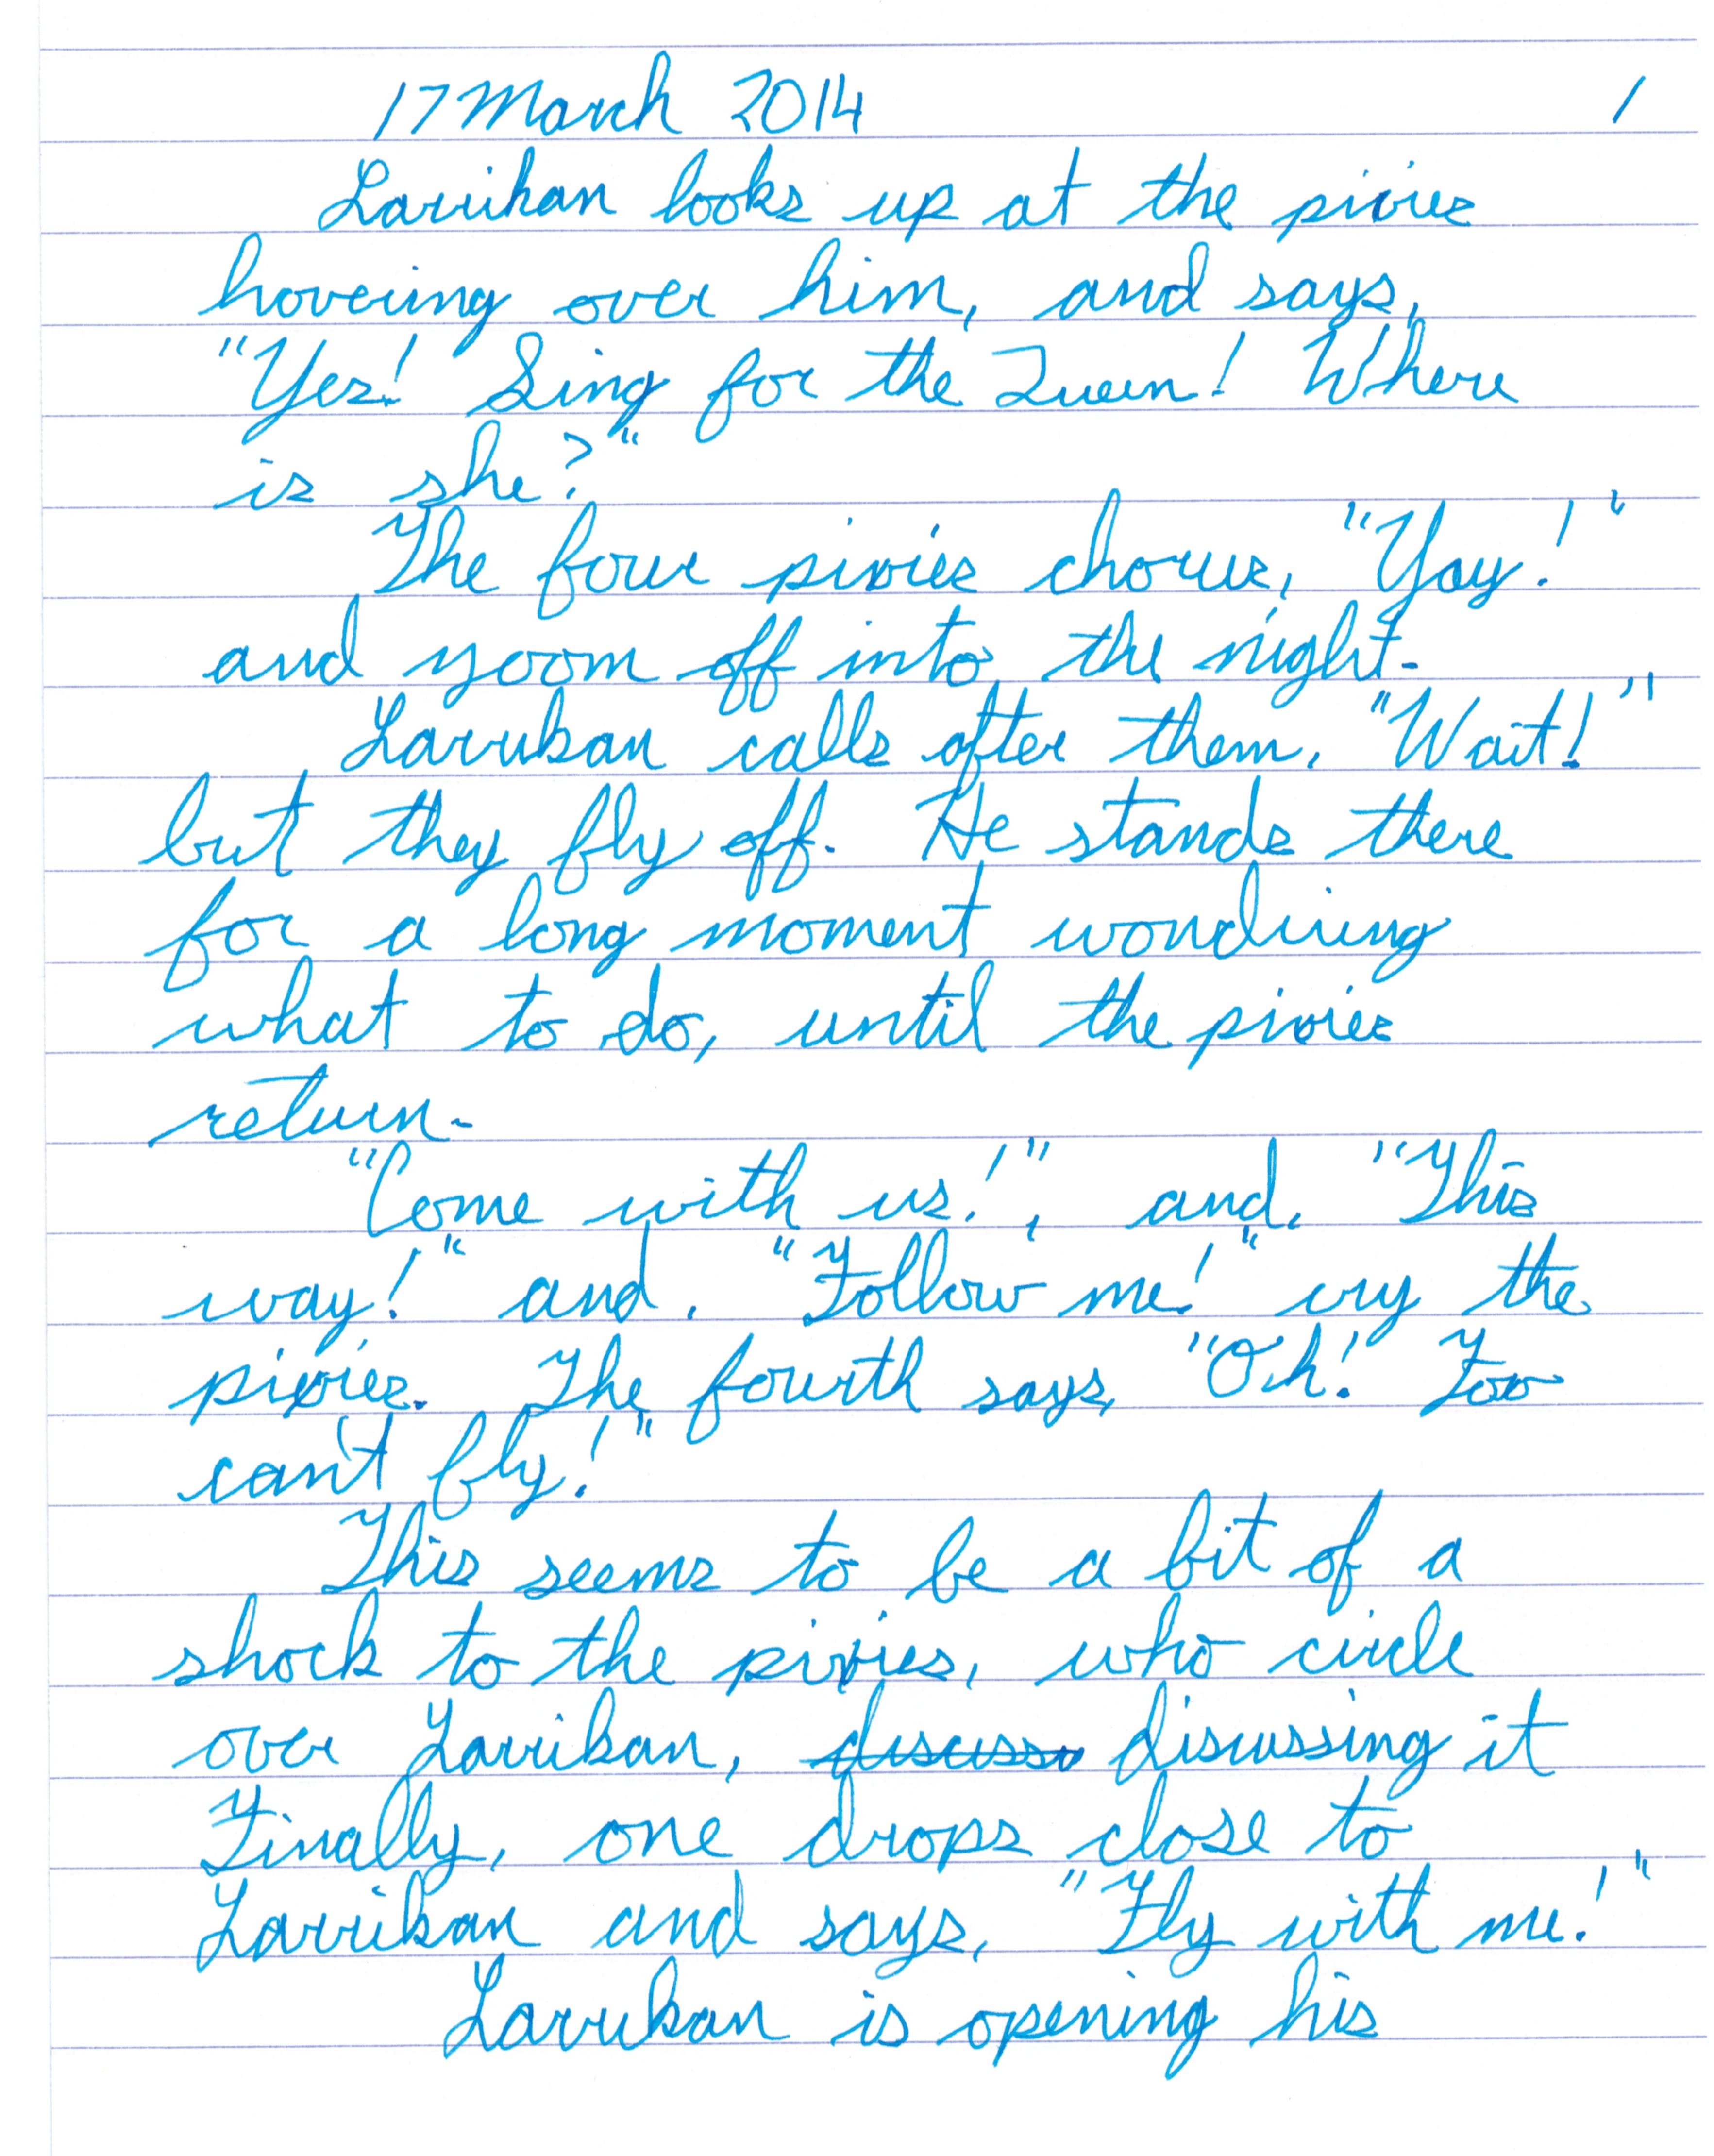 17 March 2014 1
Larrikan looks up at the pixies
hovering over him, and says,
"Yes! Sing for the Queen! Where
is she?"
The four pixies chorus, "Yay!"
and zoom off into the night.
Larrikan calls after them, "Wait!"
but they fly off. He stands there
for a long moment wondering
what to do, until the pixies
return.
"Come with us!", and, "This
way!" and, "Follow me!" cry the
pixies. The fourth says, "Oh! Foo
can't fly!"
This seems to be a bit of a
shock to the pixies, who circle
over Larrikan, discuss discussing it
Finally, one drops close to
Larrikan and says, "Fly with me!"
Larrikan is opening his